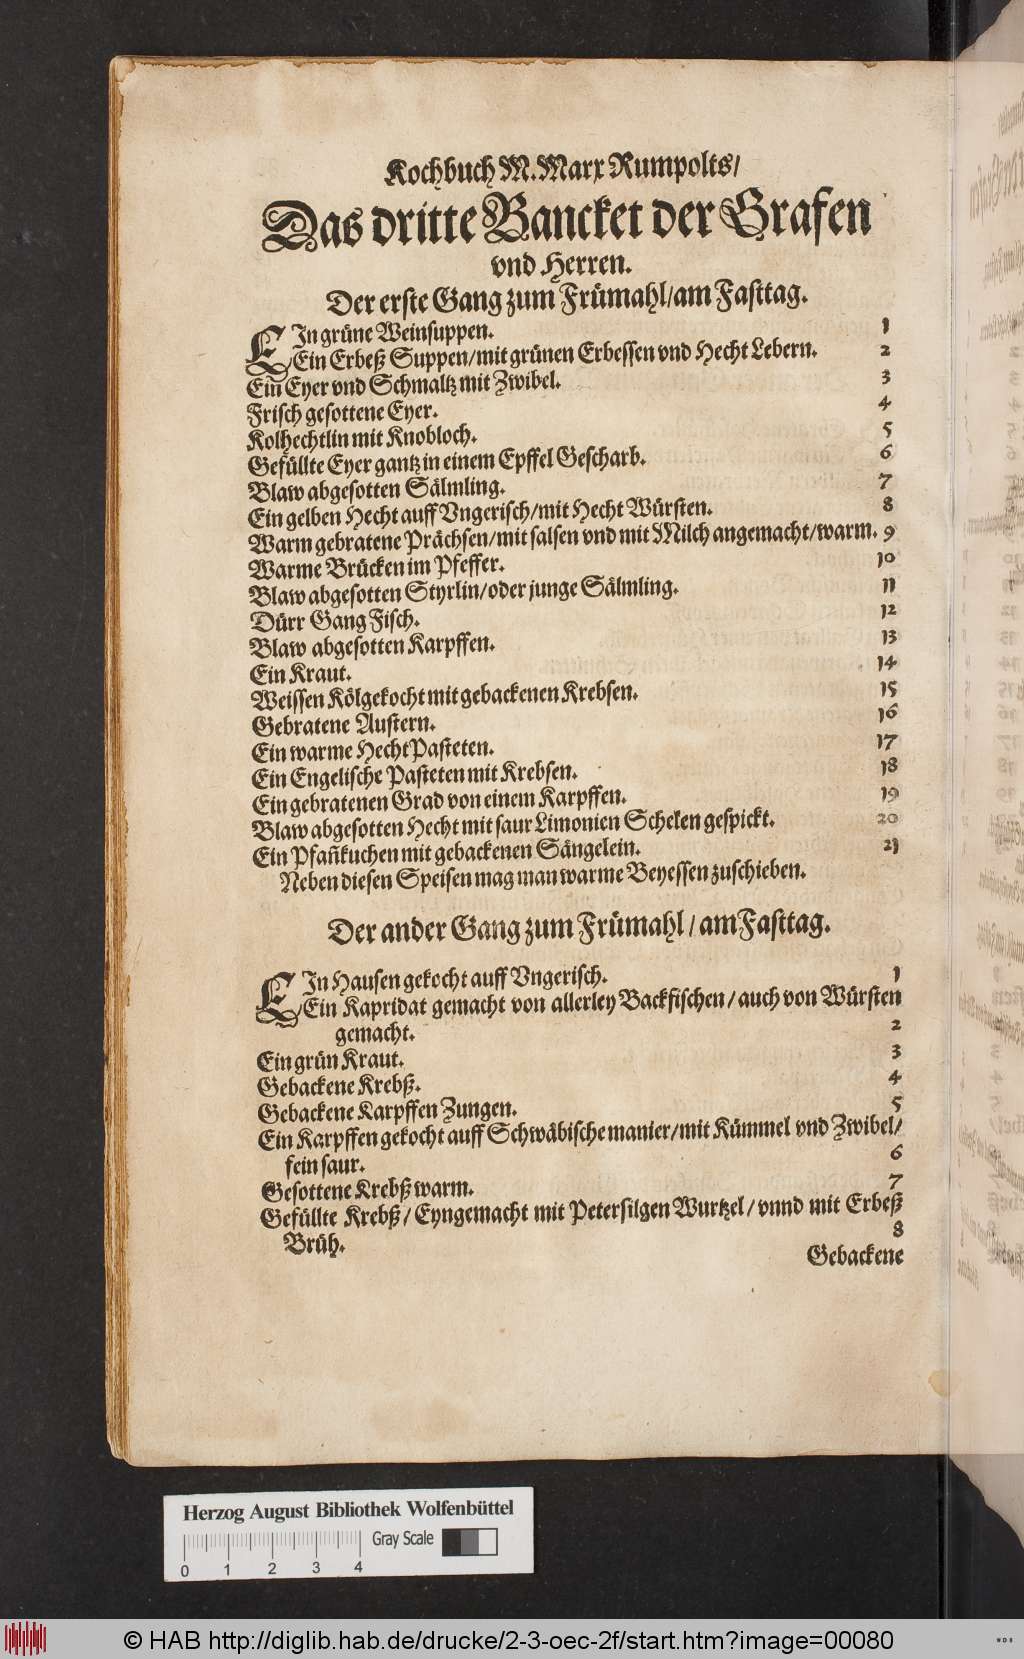 Kochbuch M. Marx Rumpolts/
Das dritte Bancket der Grafen
vnd Herren.
Der erste Gang zum Frümahl/am Fasttag.
EIn grüne Weinsuppen. 1
Ein Erbeß Suppen/mit grünen Erbessen vnd Hecht Lebern. 2
Ein̄ Eyer vnd Schmaltz mit Zwibel. 3
Frisch gesottene Eyer. 4
Kolhechtlin mit Knobloch. 5
Gefüllte Eyer gantz in einem Epffel Gescharb. 6
Blaw abgesotten Sälmling. 7
Ein gelben Hecht auff Vngerisch/mit Hecht Würsten. 8
Warm gebratene Prächsen/mit salsen vnd mit Milch angemacht/warm. 9
Warme Brücken im Pfeffer. 10
Blaw abgesotten Styrlin/oder junge Sälmling. 11
Dürr Gang Fisch. 12
Blaw abgesotten Karpffen. 13
Ein Kraut. 14
Weissen Kölgekocht mit gebackenen Krebsen. 15
Gebratene Austern. 16
Ein warme Hecht Pasteten. 17
Ein Engelische Pasteten mit Krebsen. 18
Ein gebratenen Grad von einem Karpffen. 19
Blaw abgesotten Hecht mit saur Limonien Schelen gespickt. 20
Ein Pfan̄kuchen mit gebackenen Sängelein. 21
Neben diesen Speisen mag man warme Beyessen zuschieben.
Der ander Gang zum Frümahl/am Fasttag.
EIn Hausen gekocht auff Vngerisch. 1
Ein Kapridat gemacht von allerley Backfischen/auch von Würsten
gemacht. 2
Ein grün Kraut. 3
Gebackene Krebß. 4
Gebackene Karpffen Zungen. 5
Ein Karpffen gekocht auff Schwäbische manier/mit Kümmel vnd Zwibel/
fein saur. 6
Gesottene Krebß warm. 7
Gefüllte Krebß/Eyngemacht mit Petersilgen Wurtzel/vnnd mit Erbeß
Brüh. 8
Gebackene
Herzog August Bibliothek Wolfenbüttel
Gray Scale
0 1 2 3 4
© HAB http://diglib.hab.de/drucke/2-3-oec-2f/start.htm?image=00080